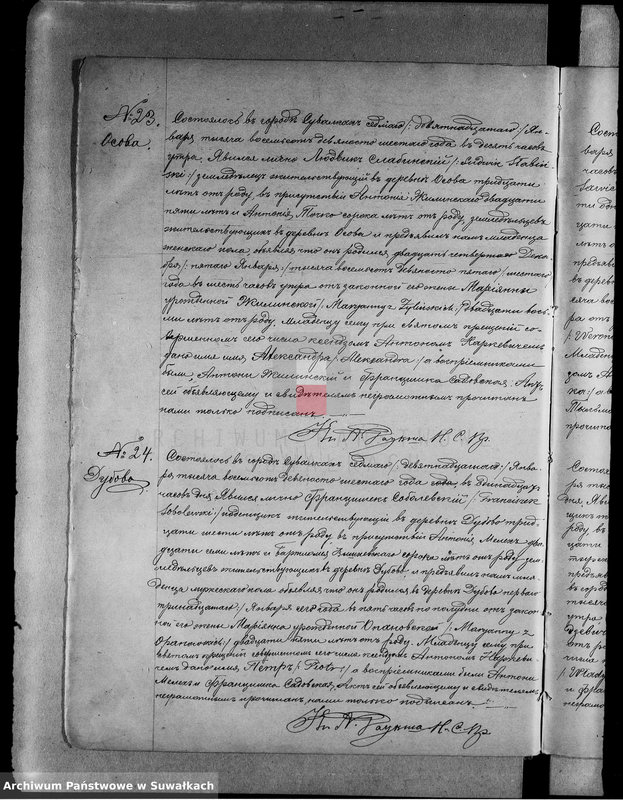 № 23.
Осова.
Состоялось въ городѣ Сувалкахъ седьмаго /: девятнадцатаго :/ Ян-
варя тысяча восемьсотъ девяносто шестаго года въ десять часовъ
утра. Явился лично Людвикъ Слабинскій /: Ludwik Słabiń-
ski :/ земледѣлецъ жительствующій въ деревнѣ Осова тридцати
лѣтъ отъ роду, въ присутствіи Антонія Жилинскаго двадцати
пяти лѣтъ и Антонія сорока лѣтъ отъ роду, земледѣльцевъ
жительствующихъ въ деревнѣ Осова и предъявилъ намъ младенца
женскаго пола, объявляя, что онъ родился двадцать четвертаго Дека-
бря /: пятаго Января :/ тысяча восемьсотъ девяносто пятаго /: шестаго
года въ шесть часовъ утра отъ законной его жены Маріянны
урожденной Жилинской /: Maryanny z Żylińskich :/ двадцати вось-
ми лѣтъ отъ роду. Младенцу сему при святомъ крещеніи со-
вершенномъ сего числа ксендзомъ Антономъ Каркевичемъ
дано имя Александра /: Aleksandra :/ а воспріемниками
были Антони Жилинскій и Францишка Садовская. Актъ
сей объявляющему и свидѣтелямъ неграмотнымъ прочитанъ
нами только подписанъ.
Кс. А. Н. С. Пр.
№ 24.
Дубово
Состоялось въ городѣ Сувалкахъ седьмаго /: девятнадцатаго :/ Янва-
ря, тысяча восемьсотъ девяносто шестаго года въ одиннадцать
часовъ дня. Явился лично Францишекъ Соболевскій /: Franciszek
Sobolewski :/ поденщикъ жительствующій въ деревнѣ Дубово трид-
цати шести лѣтъ отъ роду, въ присутствіи Антонія Мелехъ два-
дцати семи лѣтъ и Бартломея сорока лѣтъ отъ роду зем-
ледѣльцевъ жительствующихъ въ деревнѣ Дубово и предъявилъ намъ мла-
денца мужескаго пола объявляя, что онъ родился въ деревнѣ Дубово перваго
тринадцатаго /: Января сего года въ пять часовъ по полудни отъ закон-
ной его жены Маріянны урожденной /: Maryanny z
:/ двадцати пяти лѣтъ отъ роду. Младенцу сему при
святомъ крещеніи совершенномъ сего числа ксендзомъ Антономъ Каркеви-
чемъ дано имя, Петръ /: Piotr :/ а воспріемниками были Антони
Мелехъ и Францишка Садовская. Актъ сей объявляющему и свидѣтелямъ
неграмотнымъ прочитанъ, нами только подписанъ
Кс. А. Н. С. Пр.
Archiwum Państwowe w Suwałkach